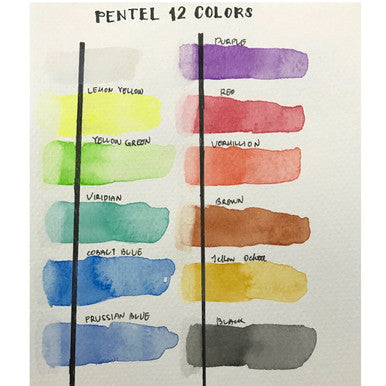 PENTEL 12 COLORS
LEMON YELLOW
YELLOW GREEN
VIRIDIAN
COBALT BLUE
PRUSSIAN BLUE
PURPLE
RED
VERMILLION
BROWN
Yellow Ochre
BLACK